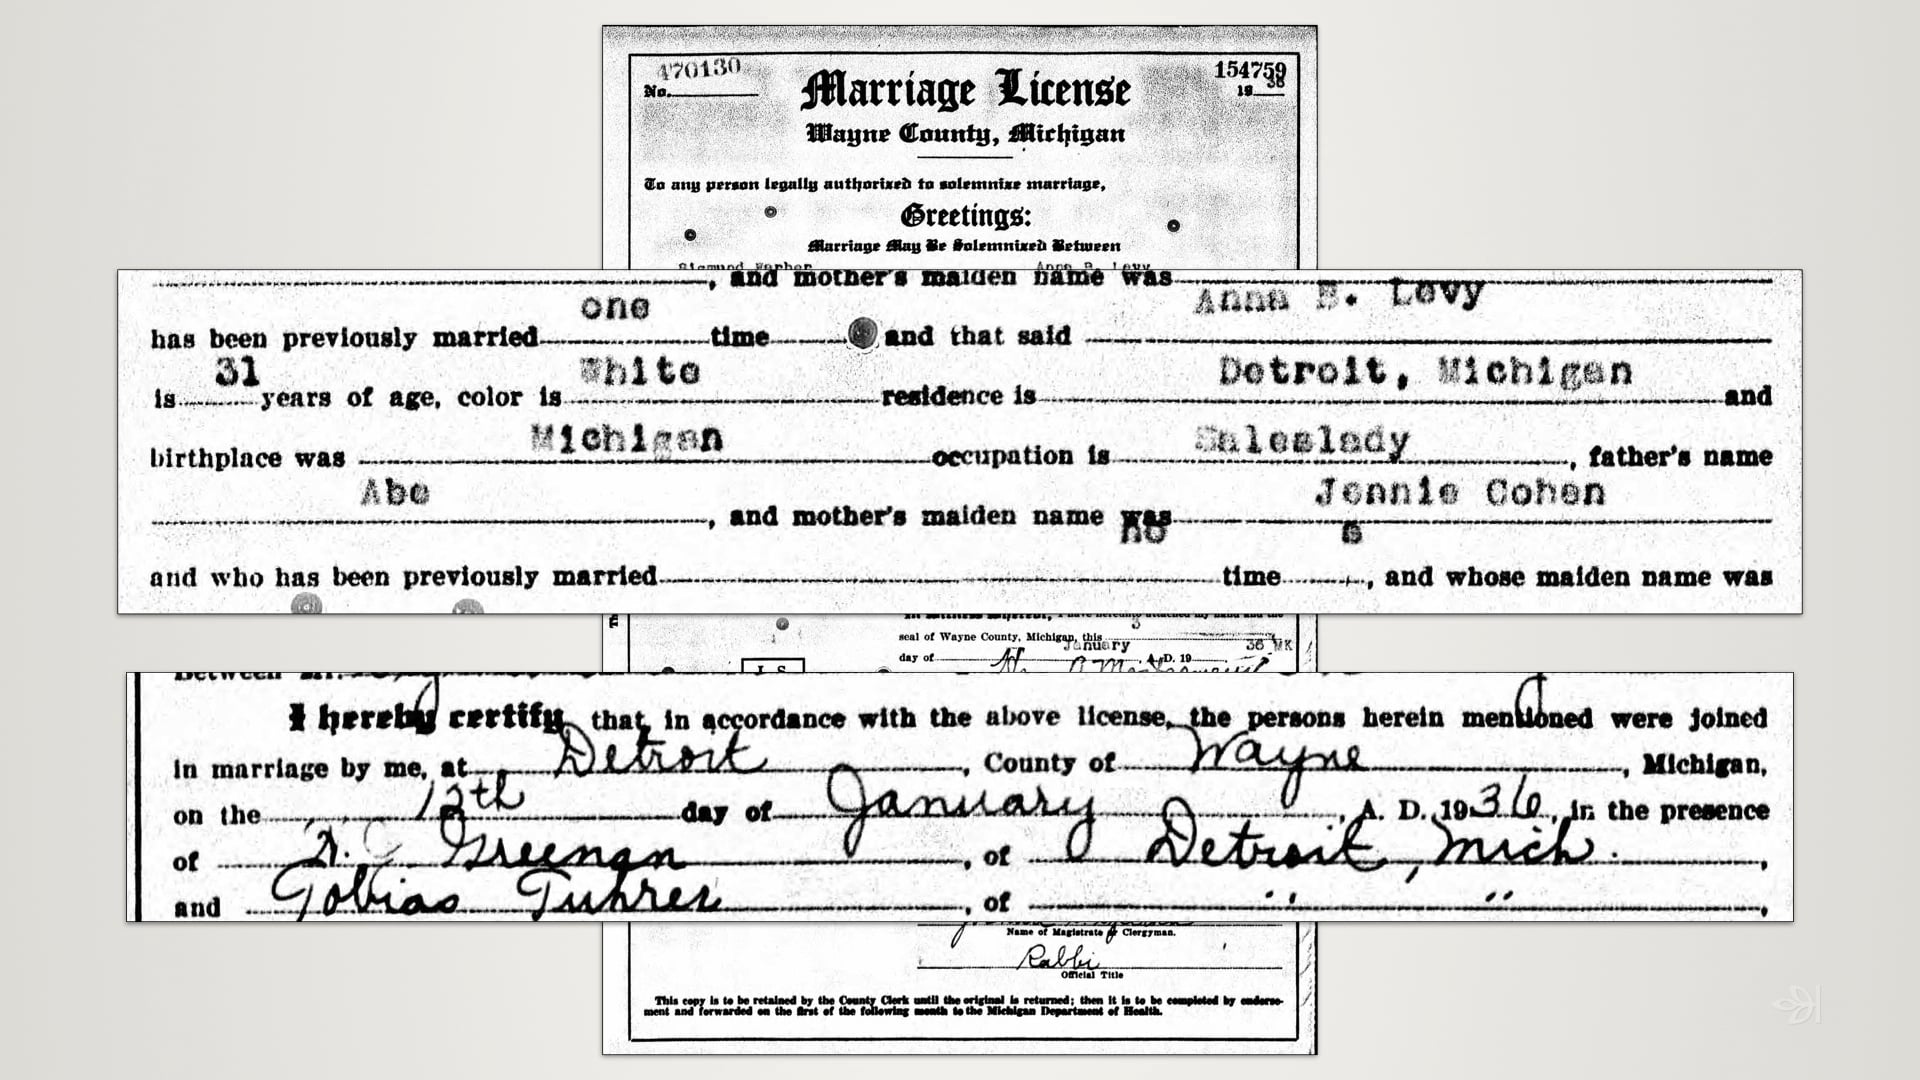 470130
No.
154759
1936
Marriage License
Wayne County, Michigan
To any person legally authorized to solemnize marriage,
Greetings:
Marriage May Be Solemnized Between
, and mother's maiden name was
has been previously married one time and that said Anna B. Levy
is 31 years of age, color is White residence is Detroit, Michigan and
birthplace was Michigan occupation is Saleslady, father's name
Abe, and mother's maiden name was Jennie Cohen
and who has been previously married no time s, and whose maiden name was
seal of Wayne County, Michigan, this 3
day of January A.D. 1936 MK
L S
I hereby certify, that, in accordance with the above license, the persons herein mentioned were joined
in marriage by me, at Detroit, County of Wayne, Michigan,
on the 12th day of January, A. D. 1936, in the presence
of Greenan, of Detroit, Mich.,
and Tobias, of " ",
Name of Magistrate or Clergyman.
Rabbi
Official Title
This copy is to be retained by the County Clerk until the original is returned; then it is to be completed by endorse-
ment and forwarded on the first of the following month to the Michigan Department of Health.